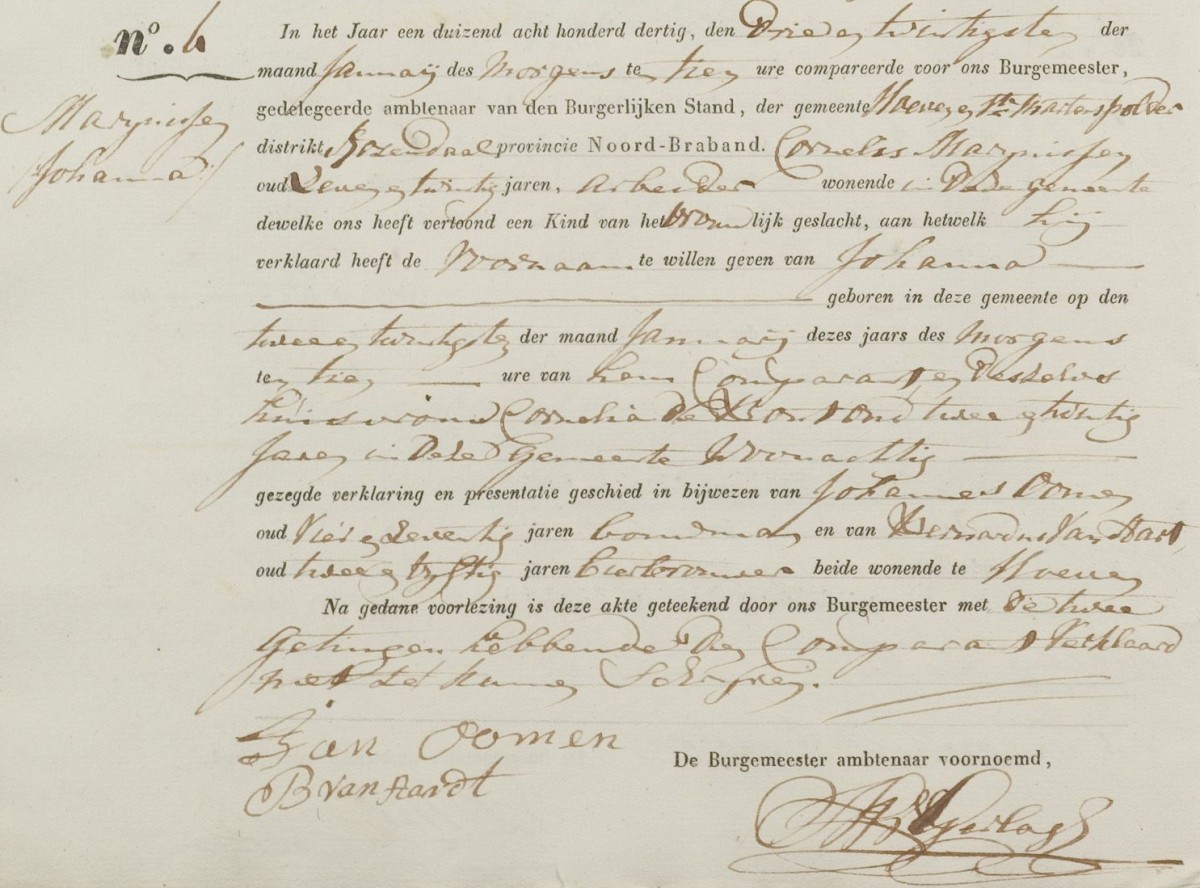 nº. 6
Marijnissen
Johanna
In het Jaar een duizend acht honderd dertig, den Drie en twintigsten der
maand Januarij des Morgens te tien ure compareerde voor ons Burgemeester,
gedelegeerde ambtenaar van den Burgerlijken Stand, der gemeente Hoeven en St. Maartenspolder
distrikt Rozendaal provincie Noord-Braband. Cornelis Marijnissen
oud Zeven en twintig jaren, Arbeider wonende in Deze gemeente
dewelke ons heeft vertoond een Kind van het vrouwlijk geslacht, aan hetwelk hij
verklaard heeft de Voornaam te willen geven van Johanna
geboren in deze gemeente op den
twee en twintigsten der maand Januarij dezes jaars des Morgens
ten tien ure van hem Comparant, en Deszelvs
huisvrouw Cornelia De Bont oud twee en twintig
Jaren in Deze Gemeente Woonachtig
gezegde verklaring en presentatie geschied in bijwezen van Johannes Oomen
oud Vier en Zeventig jaren bouwman en van Bernardus Van Aart,
oud twee en vijftig jaren bierbrouwer beide wonende te Hoeven
Na gedane voorlezing is deze akte geteekend door ons Burgemeester met De twee
Getuigen hebbende Den Comparant Verklaard
niet te kunnen Schrijven.
Jan oomen
B van aardt
De Burgemeester ambtenaar voornoemd,